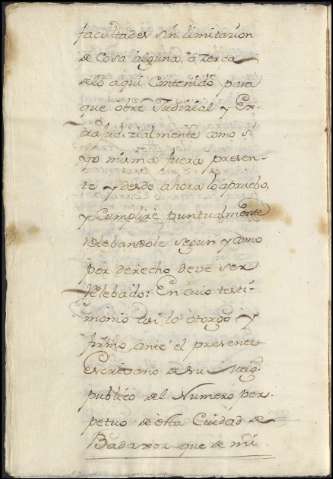 facultades sin limitacion
de cosa alguna, a cerca
de lo aqui contenido, para
que obre Judicial y Ex
tra judicialmente como si
yo misma fuera presen-
te y desde ahora lo apruebo,
y cumplire puntualmente
relebandole segun y como
por derecho deve ser
relebado: En cuio testi-
monio asi lo otorgo y
firmo, ante el presente
Escribano de su Mag.d
publico del Numero per-
petuo de esta Ciudad de
Badaxoz que de mi